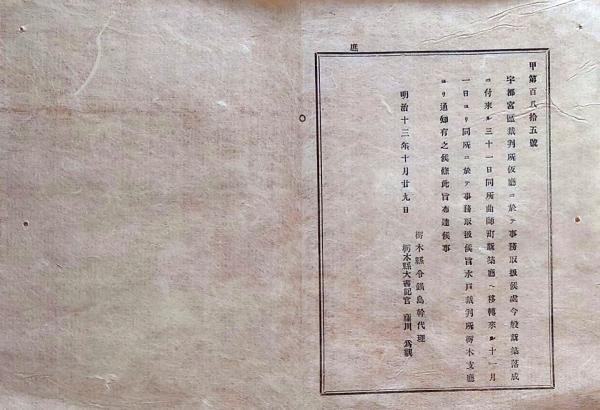 甲第百八拾五號
宇都宮區裁判所仮廳ニ於テ事務取扱候處今般新築落成
ニ付來ル三十一日同所曲師町新築廳ヘ移轉來ル十一月
一日ヨリ同所ニ於テ事務取扱候旨水戸裁判所栃木支廳
ヨリ通知有之候條此旨布達候事
明治十三年十月廿九日
栃木縣令鍋島幹代理
栃木縣大書記官 藤川為親